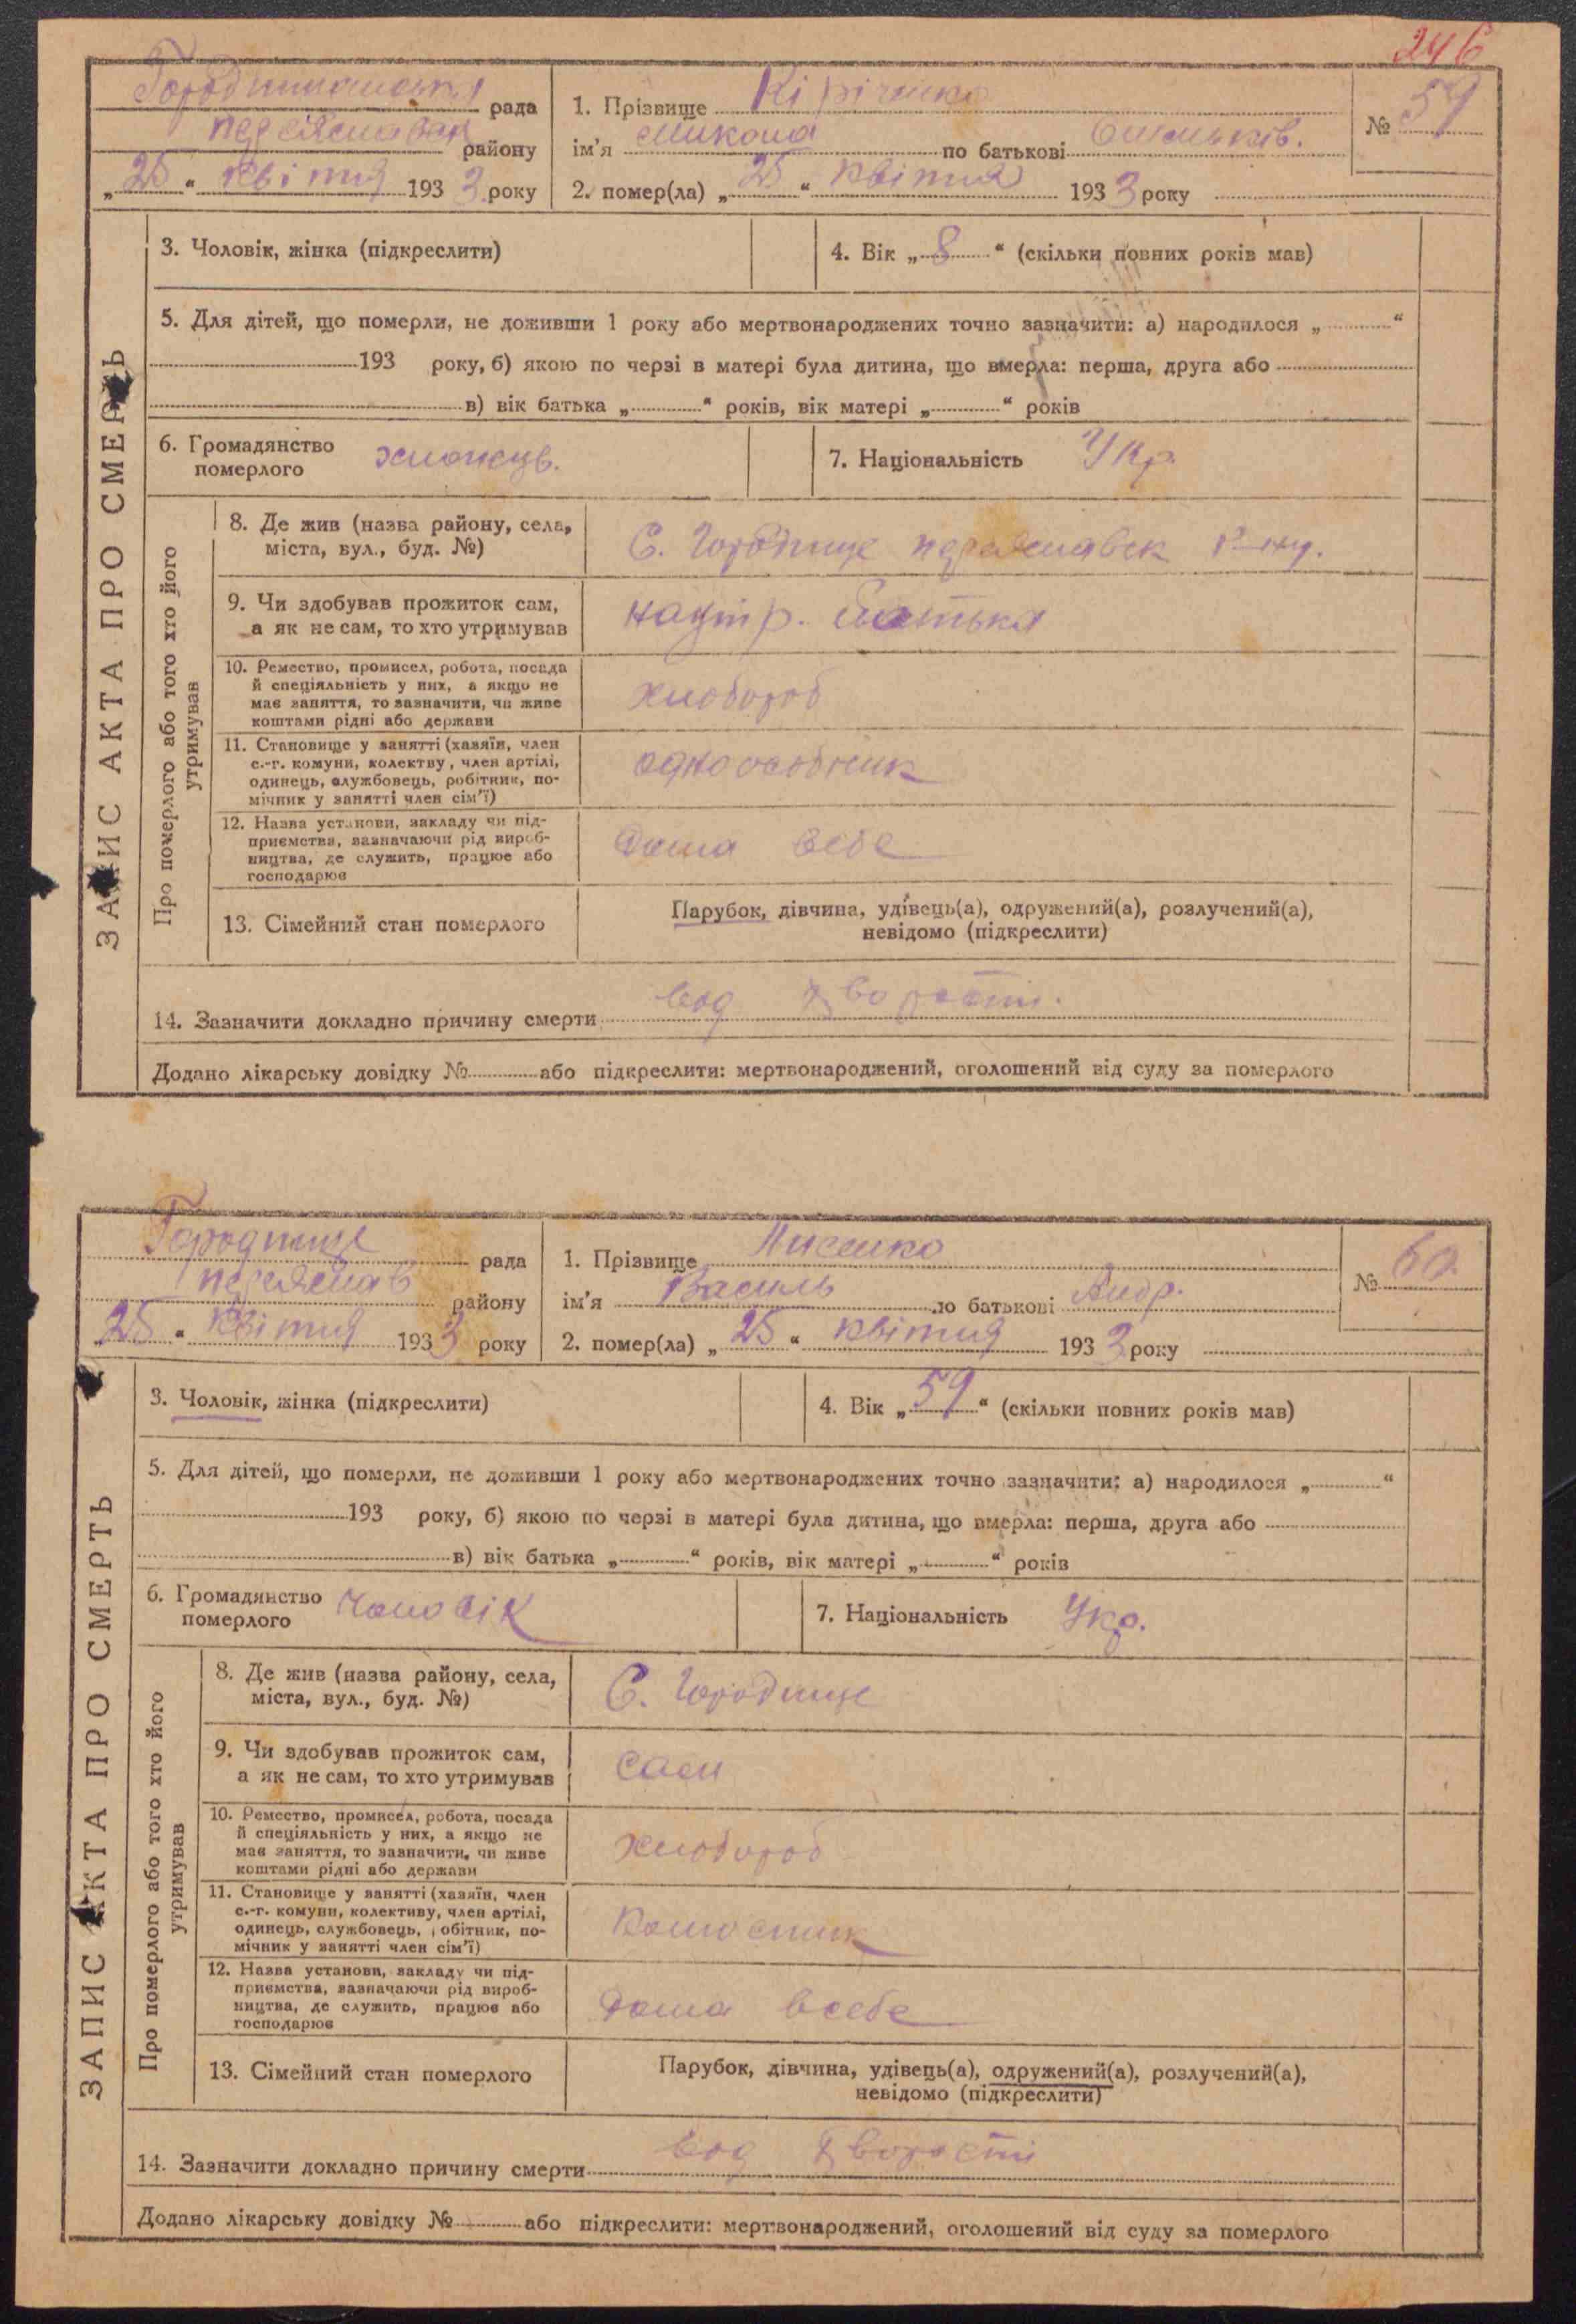 246
Городищанська рада
переяславськ району
„25“ квітня 1933 року
1. Прізвище Кіріченко
ім'я Микола по батькові Омельків.
2. помер(ла) „25“ квітня 1933 року
№ 59
ЗАПИС АКТА ПРО СМЕРТЬ
3. Чоловік, жінка (підкреслити)
4. Вік „8“ (скільки повних років мав)
5. Для дітей, що померли, не доживши 1 року або мертвонароджених точно зазначити: а) народилося „ “
193 року, б) якою по черзі в матері була дитина, що вмерла: перша, друга або
в) вік батька „ “ років, вік матері „ “ років
6. Громадянство
померлого хлопець.
7. Національність Укр.
Про померлого або того хто його
утримував
8. Де жив (назва району, села,
міста, вул., буд. №)
С. Городище переяславск р-ну.
9. Чи здобував прожиток сам,
а як не сам, то хто утримував
Наутр. батька
10. Ремество, промисел, робота, посада
й спеціяльність у них, а якщо не
має заняття, то зазначити, чи живе
коштами рідні або держави
хлобороб
11. Становище у занятті (хазяїн, член
с.-г. комуни, колектву, член артілі,
одинець, службовець, робітник, по-
мічник у занятті член сім'ї)
одноосібник
12. Назва установи, закладу чи під-
приємства, зазначаючи рід вироб-
ництва, де служить, працює або
господарює
дома вебе
13. Сімейний стан померлого
Парубок, дівчина, удівець(а), одружений(а), розлучений(а),
невідомо (підкреслити)
14. Зазначити докладно причину смерти
Додано лікарську довідку № або підкреслити: мертвонароджений, оголошений від суду за померлого
Городище рада
переяслав району
„25“ квітня 1933 року
1. Прізвище Лисенко
ім'я Василь по батькові Андр.
2. помер(ла) „25“ квітня 1933 року
№ 60.
ЗАПИС АКТА ПРО СМЕРТЬ
3. Чоловік, жінка (підкреслити)
4. Вік „59“ (скільки повних років мав)
5. Для дітей, що померли, не доживши 1 року або мертвонароджених точно зазначити: а) народилося „ “
193 року, б) якою по черзі в матері була дитина, що вмерла: перша, друга або
в) вік батька „ “ років, вік матері „ “ років
6. Громадянство
померлого чоловік
7. Національність Укр.
Про померлого або того хто його
утримував
8. Де жив (назва району, села,
міста, вул., буд. №)
С. Городище
9. Чи здобував прожиток сам,
а як не сам, то хто утримував
сам
10. Ремество, промисел, робота, посада
й спеціяльність у них, а якщо не
має заняття, то зазначити, чи живе
коштами рідні або держави
хлобороб
11. Становище у занятті (хазяїн, член
с.-г. комуни, колективу, член артілі,
одинець, службовець, робітник, по-
мічник у занятті член сім'ї)
12. Назва установи, закладу чи під-
приємства, зазначаючи рід вироб-
ництва, де служить, працює або
господарює
дома всебе
13. Сімейний стан померлого
Парубок, дівчина, удівець(а), одружений(а), розлучений(а),
невідомо (підкреслити)
14. Зазначити докладно причину смерти
Додано лікарську довідку № або підкреслити: мертвонароджений, оголошений від суду за померлого